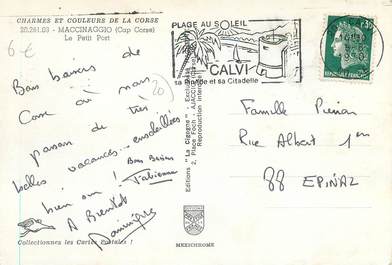 CHARMES ET COULEURS DE LA CORSE
20.261.03 - MACCINAGGIO (Cap Corse)
Le Petit Port
6€
20
Bons baisers de
Corse où nous
passons de très
belles vacances ensoleillées
bien sûr !
Bons Baisers
Fabienne
A Bientôt
Dominique
Collectionnez les Cartes Postales !
Editions "La Cigogne" - Exclusivité
2, Place Foch - AJACCIO
Reproduction interdite
MEXICHROME
PLAGE AU SOLEIL
CALVI
sa Pinède et sa Citadelle
REPUBLIQUE FRANÇAISE
Famille
Rue Albert 1er
88 EPINAL